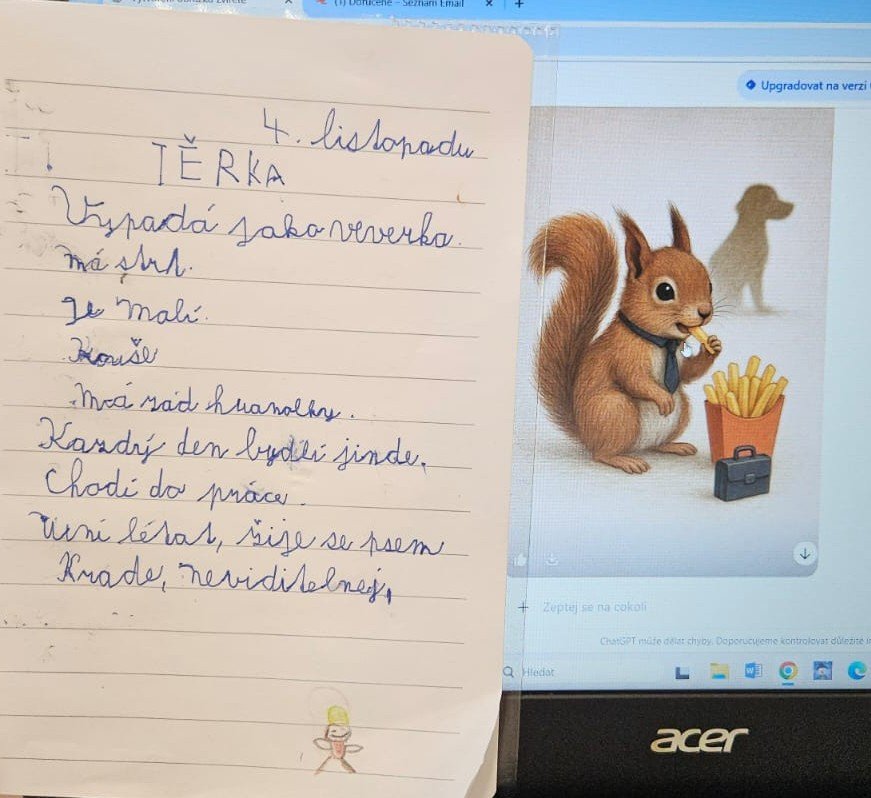 (1) Doručené – Seznam Email
Upgradovat na verzi
4. listopadu
TĚRKA
Vypadá jako veverka.
má srst.
je malí.
Kouše
Má rád hranolky.
Kazdrý den bydlí jinde.
Chodí do práce.
Umí létat, žije se psem
Krade, neviditelnej,
Zeptej se na cokoli
ChatGPT může dělat chyby. Doporučujeme kontrolovat důležité
Hledat
acer